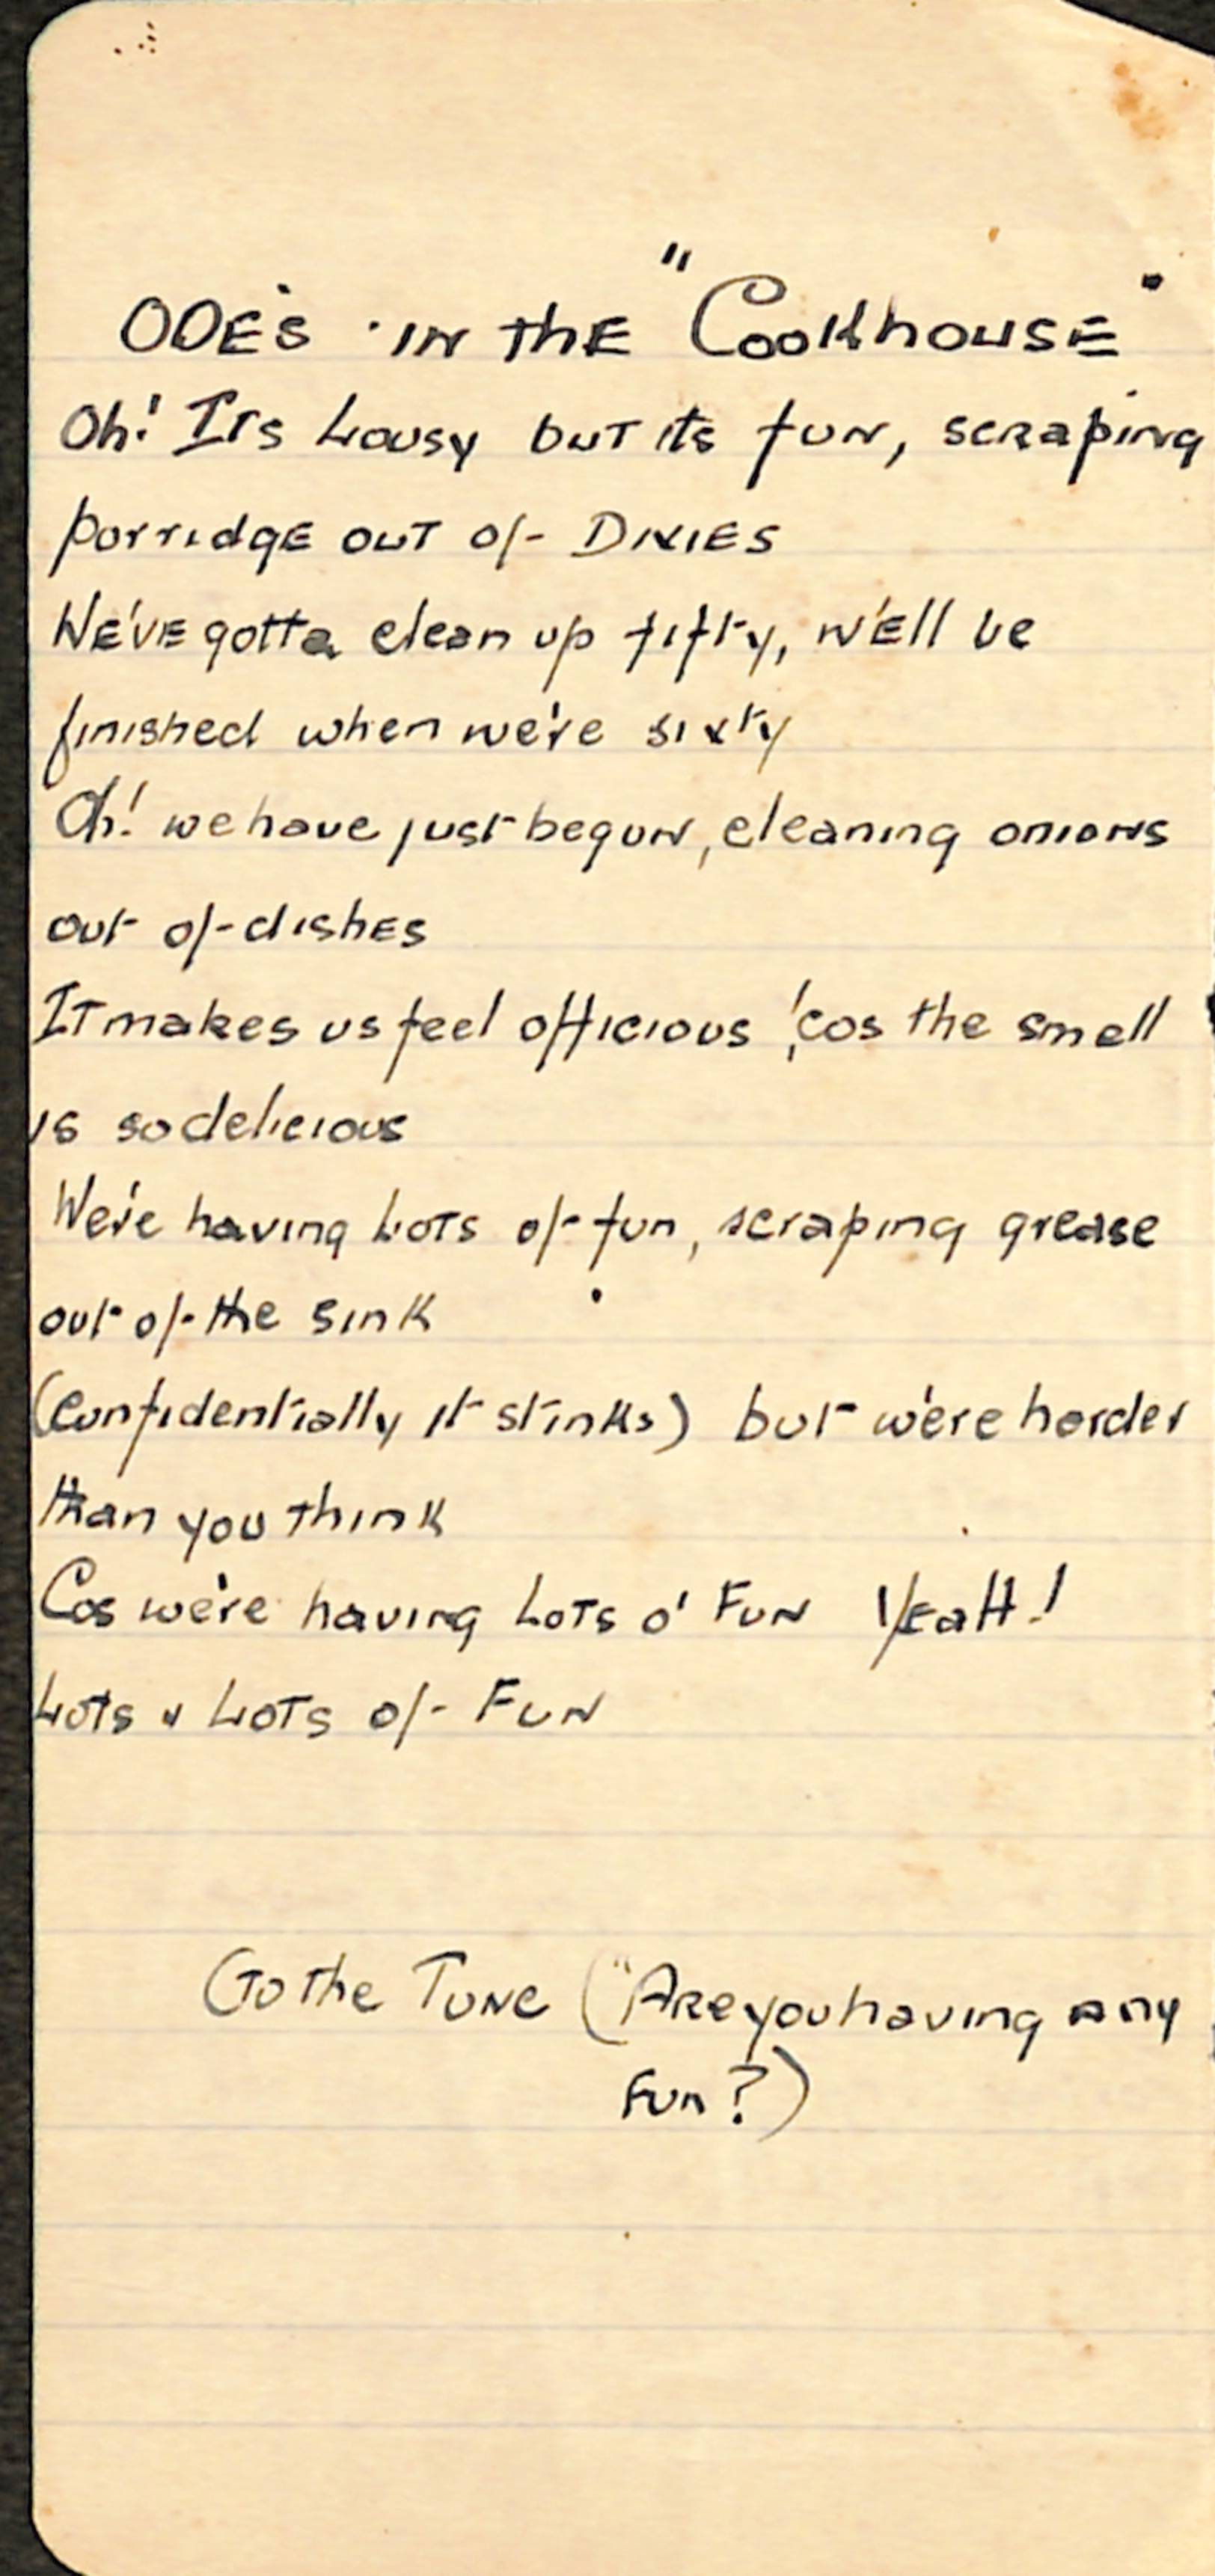 ODE'S · IN THE "COOKHOUSE"
Oh! It's Lousy but its fun, scraping
porridge out of DIXIES
WE'VE gotta clean up fifty, w'Ell be
finished when we're sixty
Oh! we have just begun, cleaning onions
out of dishes
It makes us feel officious !,cos the smell
is so delicious
We're having Lots of fun, scraping grease
out of the sink
(confidentially it stinks) but we're harder
than you think
Cos we're having Lots o' Fun YEaH!
Lots & Lots of Fun
(To the Tune ("Are you having any
Fun?)